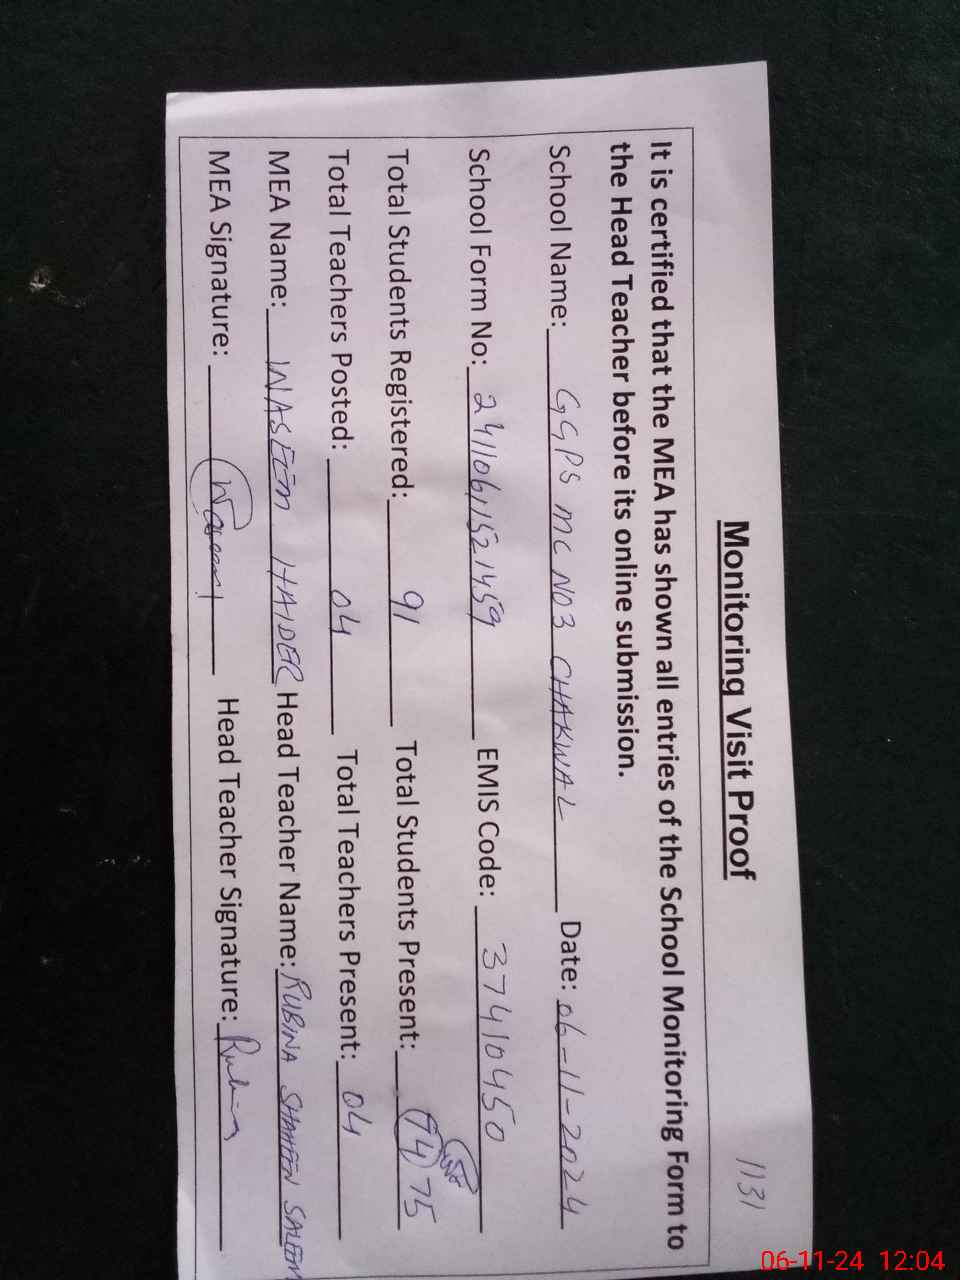 1131
Monitoring Visit Proof
It is certified that the MEA has shown all entries of the School Monitoring Form to
the Head Teacher before its online submission.
School Name: GGPS MC NO3 CHAKWAL Date: 06-11-2024
School Form No: 241106,1521459 EMIS Code: 37410450
Total Students Registered: 91 Total Students Present: (74) 75
Total Teachers Posted: 04 Total Teachers Present: 04
MEA Name: WASEEM HAIDER Head Teacher Name: RUBINA SHAHEEN SALEEM
MEA Signature: Waseem Head Teacher Signature: Rubina
06-11-24 12:04